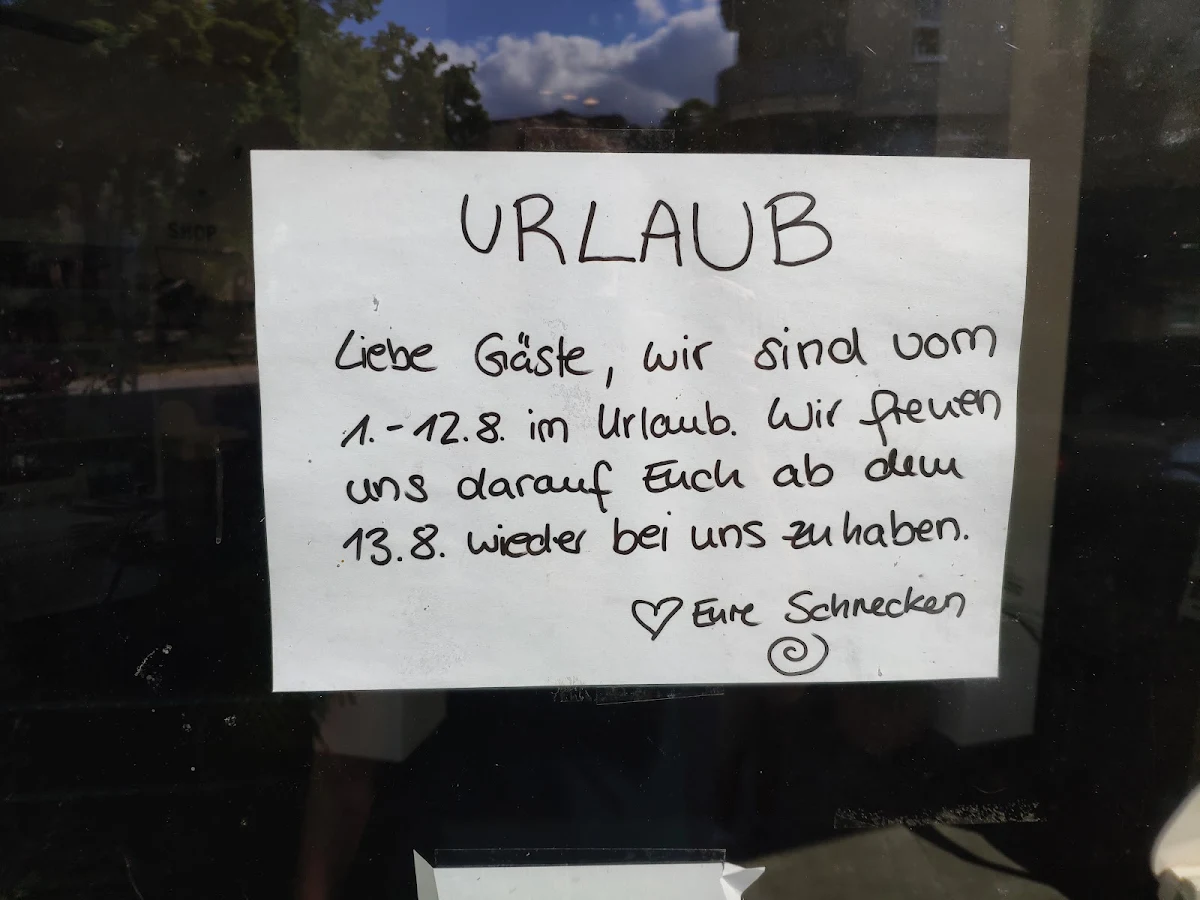 SHOP
URLAUB
Liebe Gäste, wir sind vom
1.-12.8. im Urlaub. Wir freuen
uns darauf Euch ab dem
13.8. wieder bei uns zu haben.
♡ Eure Schnecken